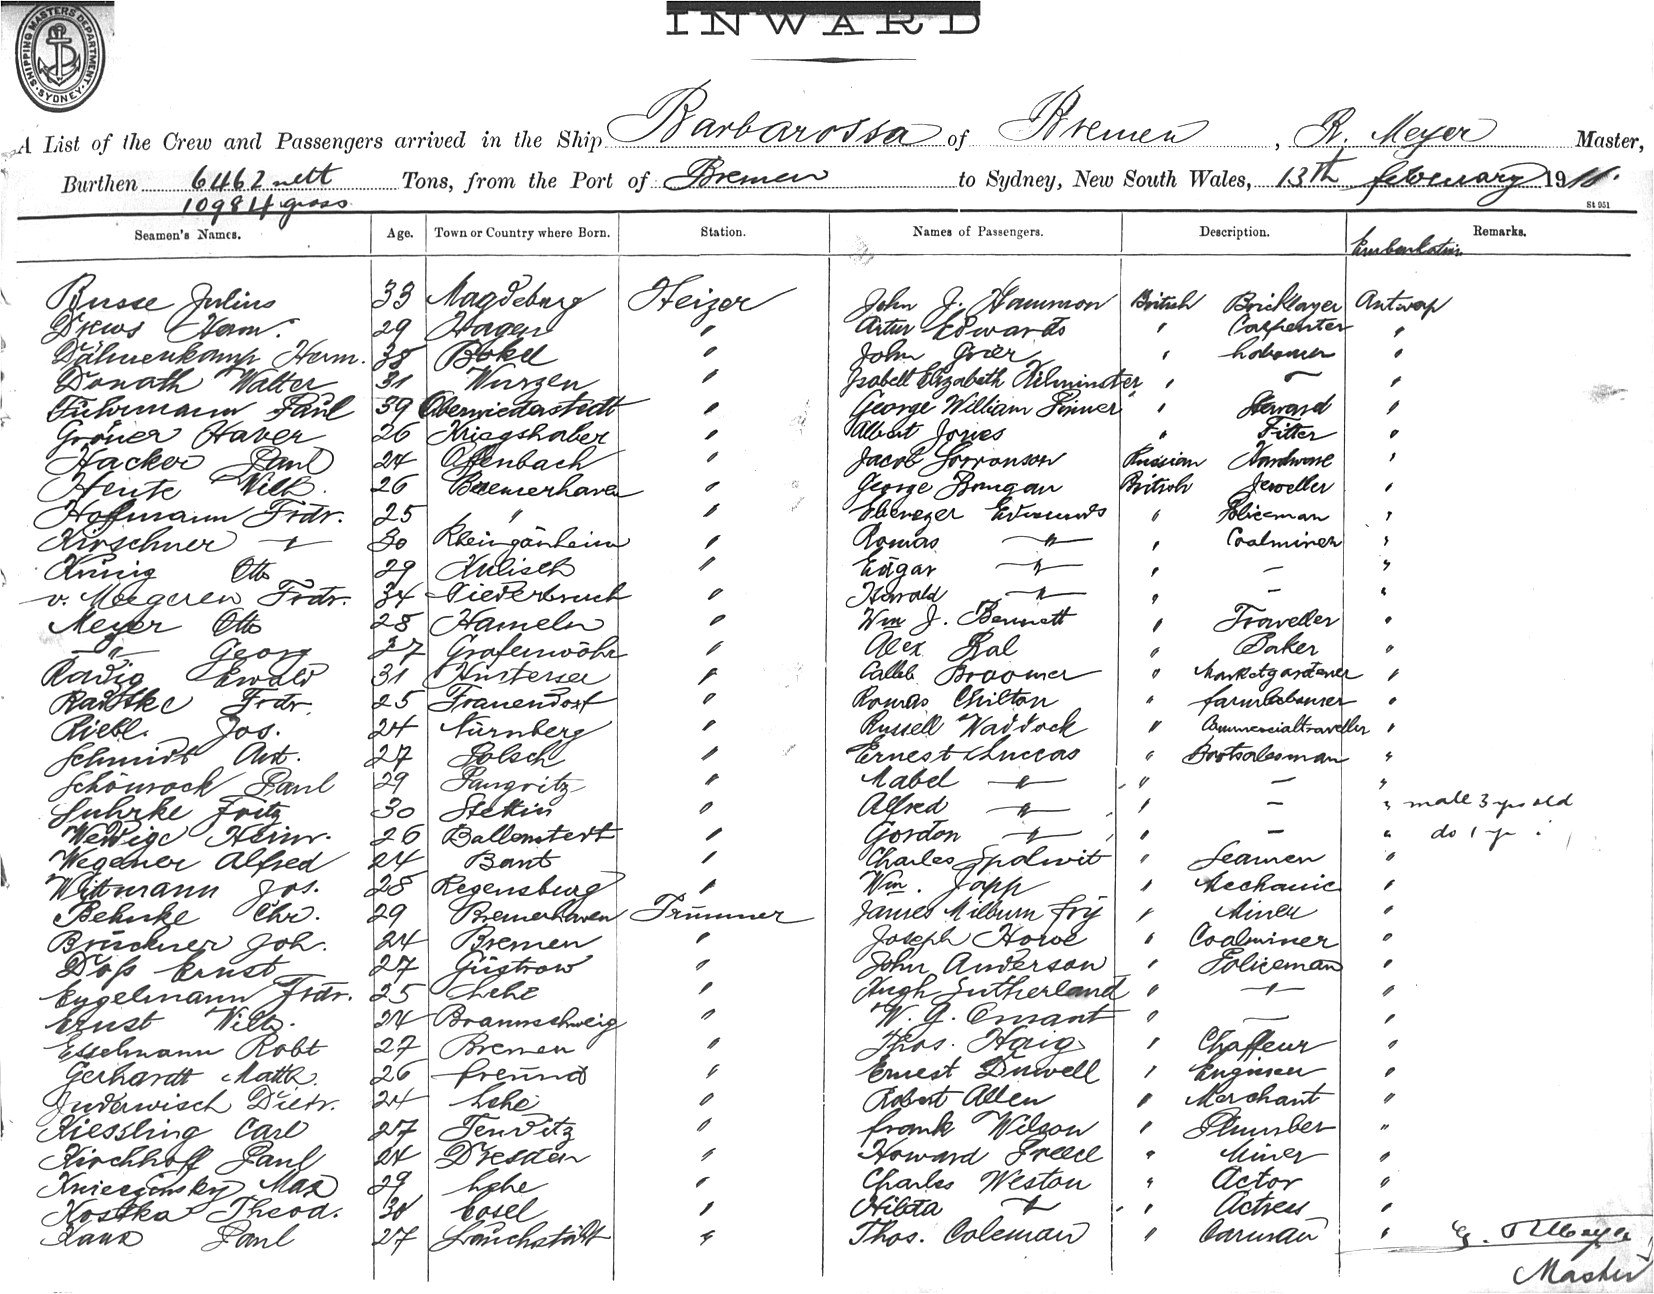 SHIPPING MASTERS DEPARTMENT
SYDNEY
INWARD
A List of the Crew and Passengers arrived in the Ship Barbarossa of Bremen, R. Meyer Master,
Burthen 6462 nett Tons, from the Port of Bremen to Sydney, New South Wales, 13th February 19
10984 gross
St 951
Seamen's Names. Age. Town or Country where Born. Station. Names of Passengers. Description. Embarkation Remarks.
Busse Julius 33 Magdeburg Heizer John J. Hammon British Bricklayer Antwerp
Drews Herm. 29 Hagen " Artur Edwards " Carpenter "
Dähnenkamp Herm. 38 Bokel " John Grier " Labourer "
Donath Walter 31 Wurzen " Isabell Elizabeth Kilminster " - "
Fuhrmann Paul 39 Oberwiederstedt " George William Pinner " Steward "
Gröner Xaver 26 Kriegshaber " Albert Jones " Fitter "
Hacker Paul 24 Offenbach " Jacob Sorronson Russian Hardware "
Hente Wilh. 26 Bremerhaven " George Brangan British Jeweller "
Hoffmann Frdr. 25 " " Ebenezer Edmunds " Policeman "
Kirschner " 30 Rheingönheim " Romas " " Coalminer "
König Otto 29 Kulisch " Edgar " " - "
v. Meegeren Frdr. 34 Niederbruch " Harold " " - "
Meyer Otto 28 Hameln " Wm J. Bennett " Traveller "
" Georg 27 Grafenwöhr " Alex Ral " Baker "
Radig Ewald 31 " Calleb Broomer " Marketgardener "
Radtke Frdr. 25 Frauendorf " Romas Chilton " farmlabourer "
Riebl Jos. 24 Nürnberg " Russell Waddock " Commercialtraveller "
Schmidt Ant. 27 Polsch " Ernest Luccas " Bootsalesman "
Schönrock Paul 29 Pangritz " Mabel " " - "
Suhrke Fritz 30 Stettin " Alfred " " - " male 3 yrs old
Weddige Heinr. 26 Ballenstedt " Gordon " " - " do 1 yr "
Wegener Alfred 24 Bant " Charles Spolwit " Seamen "
Wittmann Jos. 28 Regensburg " Wm. Japp " Mechanic "
Behnke Chr. 29 Bremerhaven Trimmer James Milburn Fry " Miner "
Brückner Joh. 24 Bremen " Joseph Howe " Coalminer "
Doß Ernst 27 Güstrow " John Anderson " Policeman "
Engelmann Frdr. 25 Lehe " Hugh Sutherland " " "
Ernst Wilh. 24 Braunschweig " W. G. " - "
Esselmann Robt 27 Bremen " Thos. Haig " Chaffeur "
Gerhardt Matth. 26 Freund " Ernest Duwell " Engineer "
Juderwisch Dietr. 24 Lehe " Robert Allen " Merchant "
Kiessling Carl 27 Tenditz " Frank Wilson " Plumber "
Kirchhoff Paul 24 Dresden " Howard Preece " Miner "
Max 29 Lehe " Charles Weston " Actor "
Kostka Theod. 30 Cosel " Hilda " " Actress "
Kaux Paul 27 Lauchstädt " Thos. Coleman " Carman "
Master